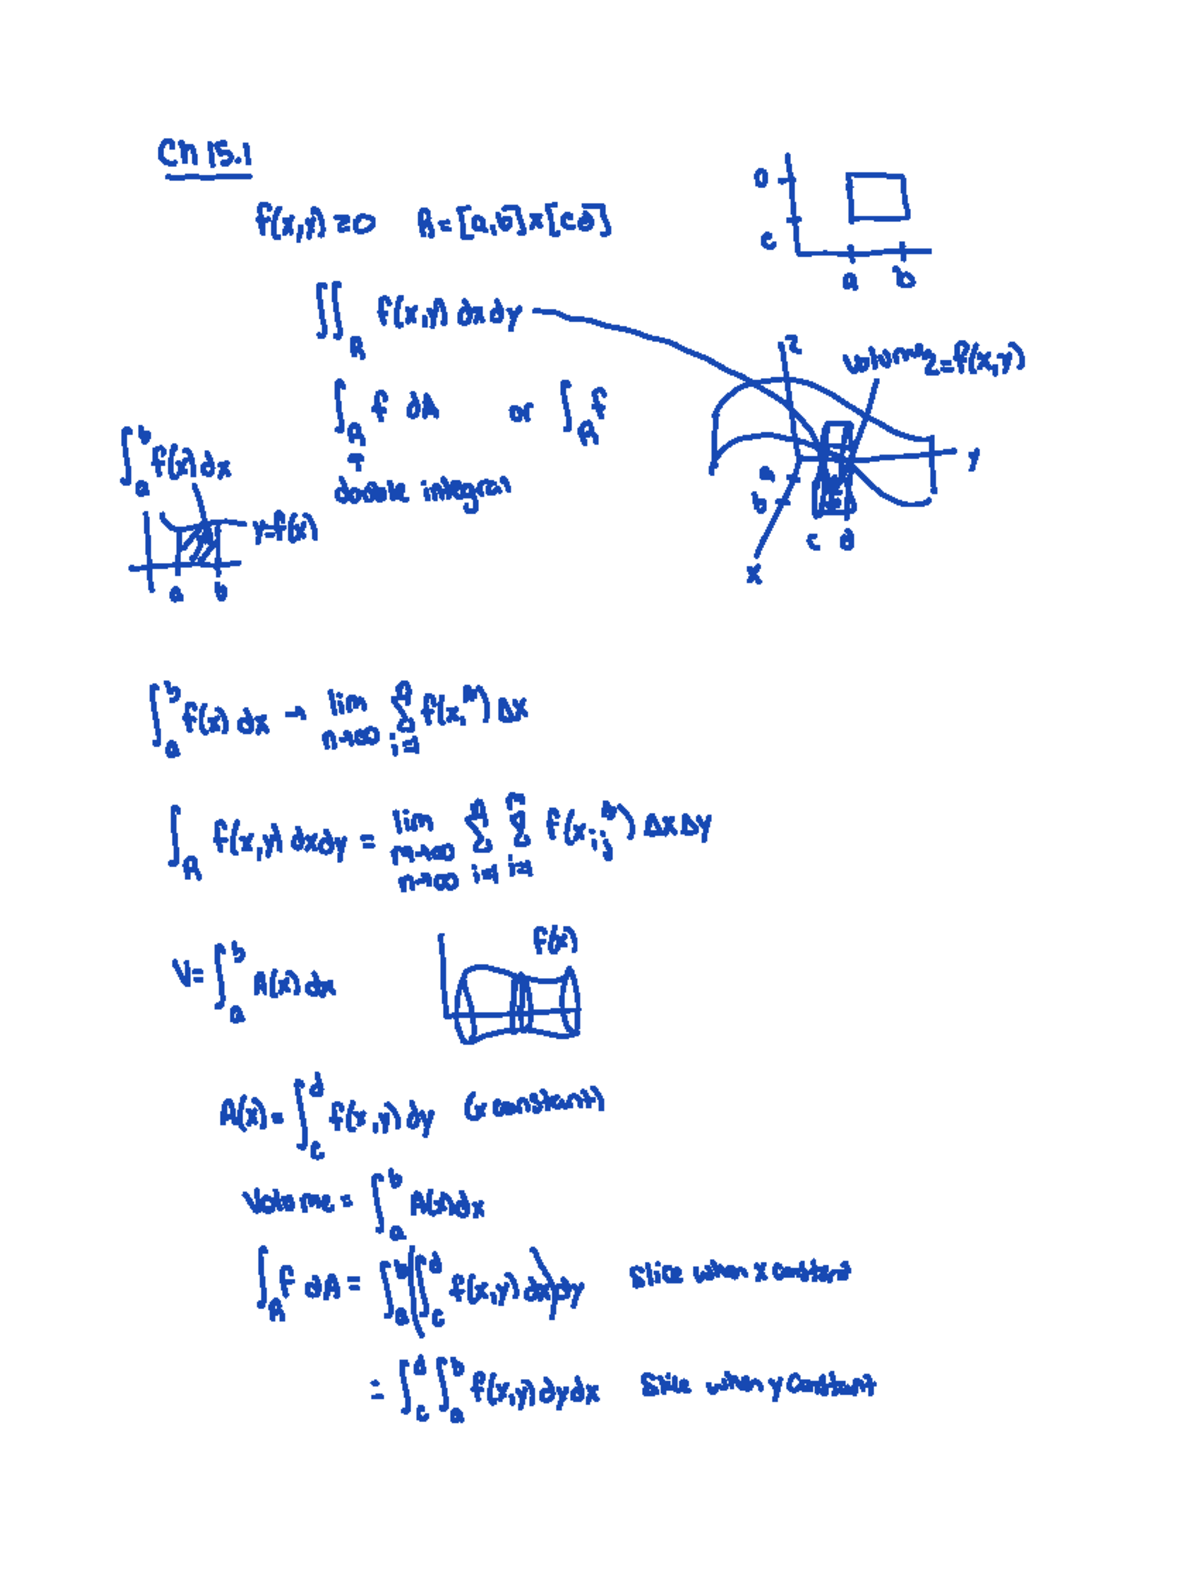 Ch 15.1
f(x,y) ≥ 0   R = [a,b] x [c d]
D
c
a b
∬_R f(x,y) dx dy
z
volume z=f(x,y)
∫_R f dA or ∫_R f
y
a
b
c d
x
double integral
∫_a^b f(x) dx
y=f(x)
a b
∫_a^b f(x) dx → lim n→∞ ∑_{i=1}^n f(x_i^*) Δx
∫_R f(x,y) dx dy = lim m→∞ n→∞ ∑_{i=1}^n ∑_{i=1}^m f(x_{ij}^*) Δx Δy
V = ∫_a^b A(x) dx
f(x)
A(x) = ∫_c^d f(x,y) dy (x constant)
Volume = ∫_a^b A(x) dx
∫_R f dA = ∫_a^b (∫_c^d f(x,y) dx) dy   Slice when x constant
= ∫_c^d ∫_a^b f(x,y) dy dx   Slice when y constant